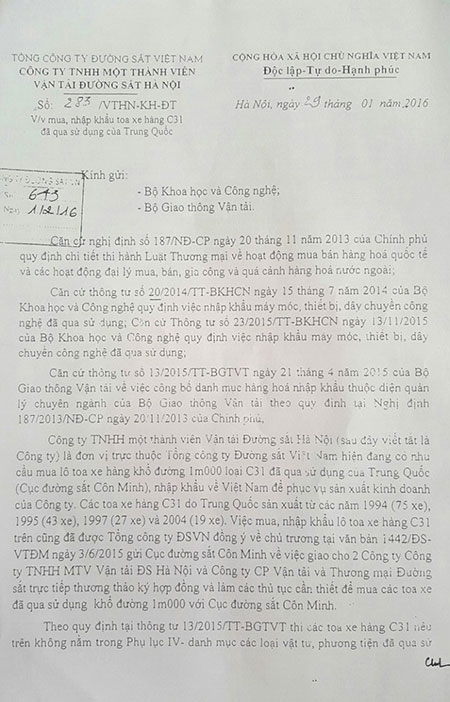 TỔNG CÔNG TY ĐƯỜNG SẮT VIỆT NAM
CÔNG TY TNHH MỘT THÀNH VIÊN
VẬN TẢI ĐƯỜNG SẮT HÀ NỘI
Số: 283/VTHN-KH-ĐT
V/v mua, nhập khẩu toa xe hàng C31
đã qua sử dụng của Trung Quốc
CỘNG HÒA XÃ HỘI CHỦ NGHĨA VIỆT NAM
Độc lập-Tự do-Hạnh phúc
Hà Nội, ngày 29 tháng 01 năm 2016
ĐƯỜNG SẮT VN
643
Ngày 1/2/16
Kính gửi:
- Bộ Khoa học và Công nghệ;
- Bộ Giao thông Vận tải.
Căn cứ nghị định số 187/NĐ-CP ngày 20 tháng 11 năm 2013 của Chính phủ
quy định chi tiết thi hành Luật Thương mại về hoạt động mua bán hàng hoá quốc tế
và các hoạt động đại lý mua, bán, gia công và quá cảnh hàng hoá nước ngoài;
Căn cứ thông tư số 20/2014/TT-BKHCN ngày 15 tháng 7 năm 2014 của Bộ
Khoa học và Công nghệ quy định việc nhập khẩu máy móc, thiết bị, dây chuyền công
nghệ đã qua sử dụng; Căn cứ Thông tư số 23/2015/TT-BKHCN ngày 13/11/2015
của Bộ Khoa học và Công nghệ quy định việc nhập khẩu máy móc, thiết bị, dây
chuyền công nghệ đã qua sử dụng;
Căn cứ thông tư số 13/2015/TT-BGTVT ngày 21 tháng 4 năm 2015 của Bộ
Giao thông Vận tải về việc công bố danh mục hàng hoá nhập khẩu thuộc diện quản
lý chuyên ngành của Bộ Giao thông Vận tải theo quy định tại Nghị định
187/2013/NĐ-CP ngày 20/11/2013 của Chính phủ,
Công ty TNHH một thành viên Vận tải Đường sắt Hà Nội (sau đây viết tắt là
Công ty) là đơn vị trực thuộc Tổng công ty Đường sắt Việt Nam hiện đang có nhu
cầu mua lô toa xe hàng khổ đường 1m000 loại C31 đã qua sử dụng của Trung Quốc
(Cục đường sắt Côn Minh), nhập khẩu về Việt Nam để phục vụ sản xuất kinh doanh
của Công ty. Các toa xe hàng C31 do Trung Quốc sản xuất từ các năm 1994 (75 xe),
1995 (43 xe), 1997 (27 xe) và 2004 (19 xe). Việc mua, nhập khẩu lô toa xe hàng C31
trên cũng đã được Tổng công ty ĐSVN đồng ý về chủ trương tại văn bản 1442/ĐS-
VTĐM ngày 3/6/2015 gửi Cục đường sắt Côn Minh về việc giao cho 2 Công ty Công
ty TNHH MTV Vận tải ĐS Hà Nội và Công ty CP Vận tải và Thương mại Đường
sắt trực tiếp thương thảo ký hợp đồng và làm các thủ tục cần thiết để mua các toa xe
đã qua sử dụng khổ đường 1m000 với Cục đường sắt Côn Minh.
Theo quy định tại thông tư 13/2015/TT-BGTVT thì các toa xe hàng C31 nêu
trên không nằm trong Phụ lục IV- danh mục các loại vật tư, phương tiện đã qua sử